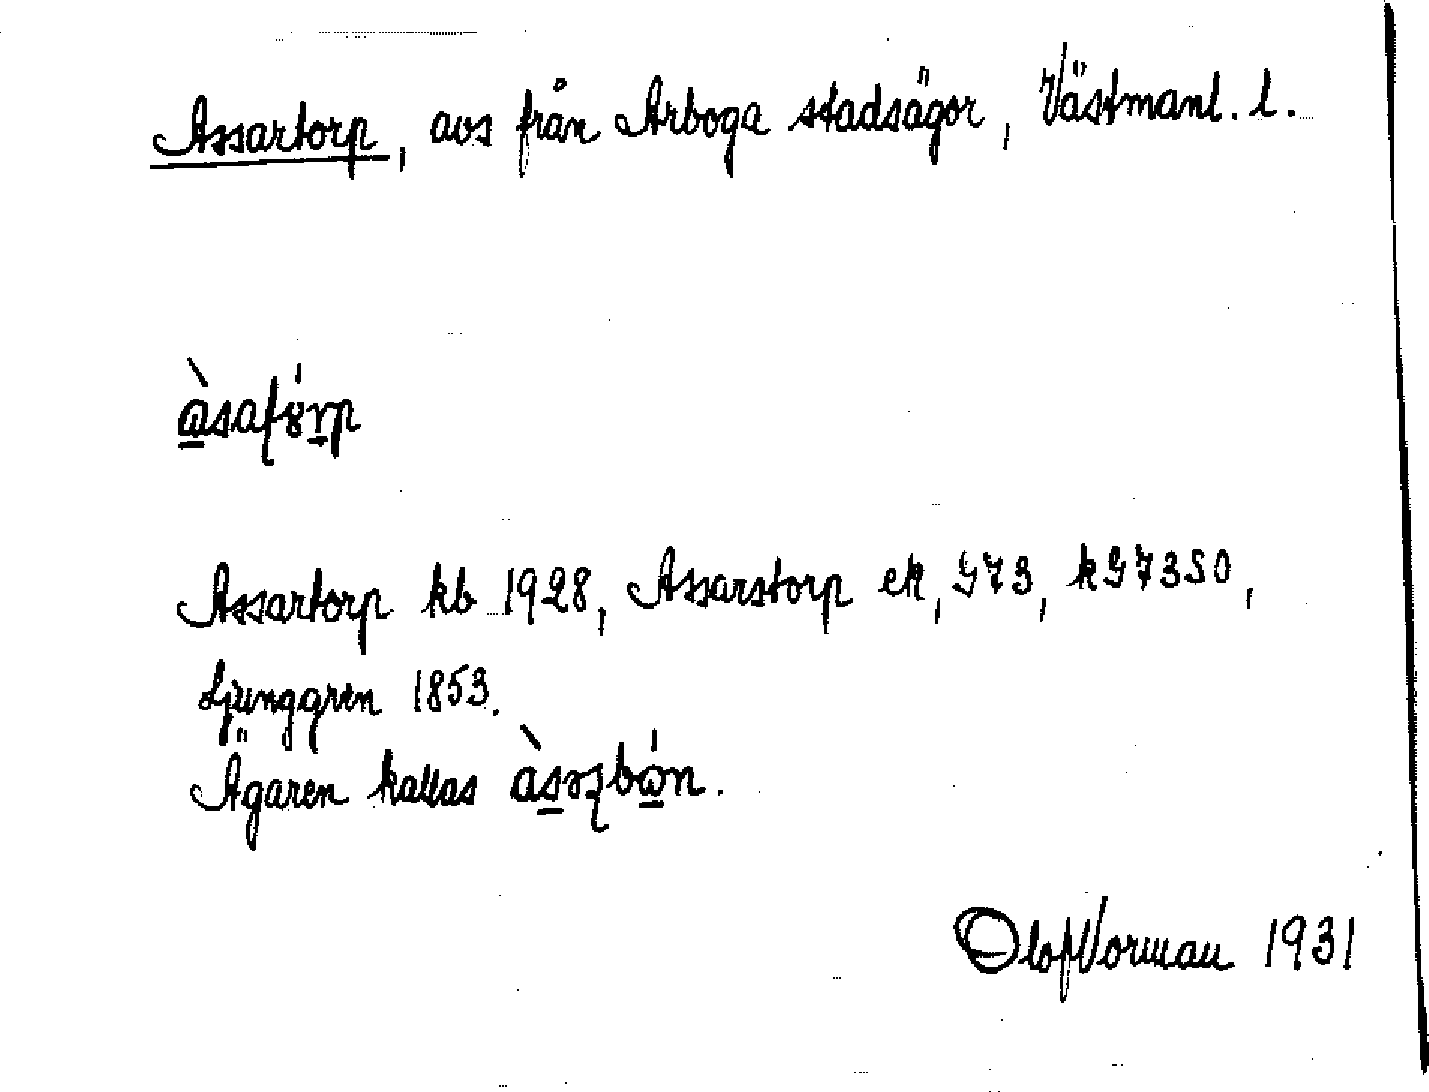 Assartorp, avs från Arboga stadsägor, Västmanl. l.
Assartorp kb 1928, Assarstorp ek, G73, kG73SO,
Ljunggren 1853.
Ägaren kallas
Olof Vorman 1931